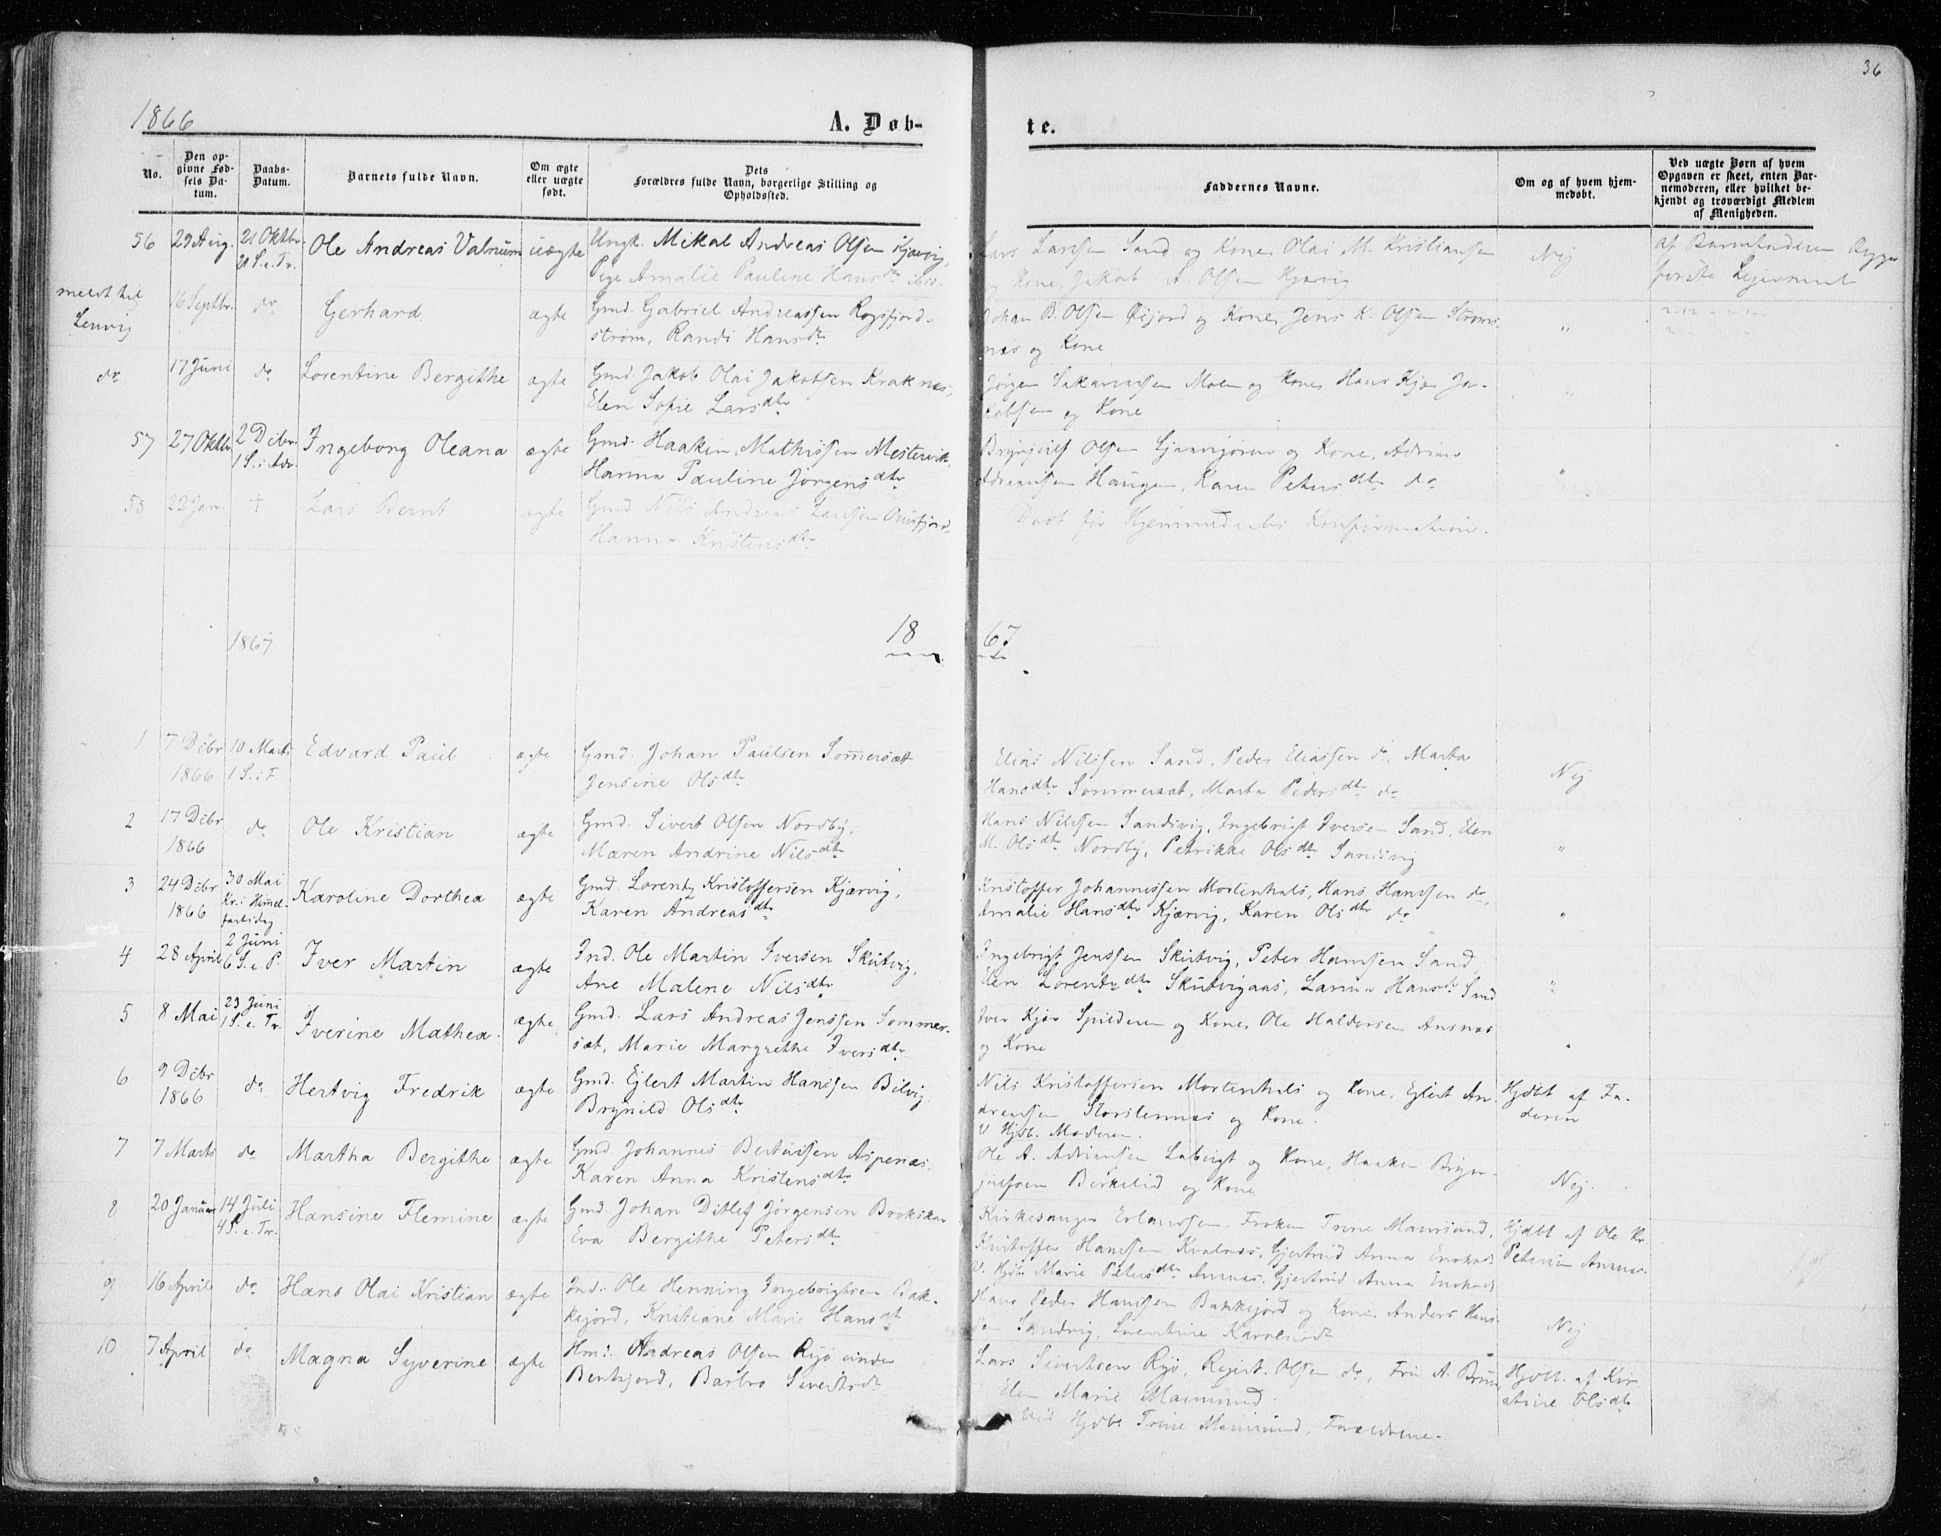 36
1866
A. Døb-
te.
No.
Den op-
givne Fød-
sels Da-
tum.
Daabs-
Datum.
Barnets fulde Navn.
Om ægte
eller uægte
født.
Dets
Forældres fulde Navn, borgerlige Stilling og
Opholdssted.
Faddernes Navne.
Om og af hvem hjem-
medøbt.
Ved uægte Børn af hvem
Opgaven er skeet, enten Bar-
nemoderen, eller hvilket be-
kjendt og troværdigt Medlem
af Menigheden.
56 29 Aug. 21 Oktbr. Ole Andreas Valnum uægte Ungk. Mikal Andreas Olsen Kjærvig,
21 S. e. Tr. Pige Amalie Pauline Hansdtr ibid.
Lars Larssen Sand og Kone, Olai M. Kristiansen
og Kone, Jakob A. Olsen Kjærvig
Nej
af Barnefaderen
første Leiermaal
meldt til
Lenvig
16 Septbr. do Gerhard ægte Gmd. Gabriel Andreassen Rogsfjord-
strøm, Randi Hansdtr
Johan B. Olsen Øijord og Kone, Jens K. Olsen Strøms-
næs og Kone
"
do 17 Juni do Lorentine Bergithe ægte Gmd. Jakob Olai Jakobsen Kraknæs,
Elen Sofie Larsdtr
Jørgen Sakariassen Moen og Kone, Hans Kjær Ja-
kobsen og Kone
"
57 27 Oktbr. 2 Dcbr. Ingeborg Oleana ægte Gmd. Haaken Mathissen Mestervik,
1 S. i Adv. Hanna Pauline Jørgensdtr
Brynjulf Olsen og Kone, Adrian
Adriansen Haugen, Karen Petersdtr do
"
58 22 Jan. † Lars Bernt ægte Gmd. Nils Andreas Larssen
Hanna Kristensdtr
Død før Hjemmedaabs Konfirmation.
1867
18 67
1 7 Dcbr 10 Marts Edvard Paul ægte Gmd. Johan Paulsen Sommersæt
1866 1 S. i F. Jensine Olsdtr
Elias Nilssen Sand, Peder Eliassen do, Marta
Hansdtr Sommersæt, Marta Pedersdtr do
Nej
2 17 Dcbr do Ole Kristian ægte Gmd. Sivert Olsen Nordby,
1866 Maren Andrine Nilsdtr
Hans Nilssen Sandvig, Ingebrigt Iversen Sand, Elen
M. Olsdtr Nordby, Petrikke Olsdtr Sandvig
"
3 24 Dcbr 30 Mai Karoline Dorthea ægte Gmd. Lorentz Kristoffersen Kjærvig,
1866 Kr. i Himel-
fartsdag Karen Andreasdtr
Kristoffer Johannessen Mortenhals, Hans Hanssen do,
Amalie Hansdtr Kjærvig, Karen Olsdtr do
"
4 28 April 2 Juni Iver Martin ægte Ind. Ole Martin Iversen Skutvig,
6 S. e. P. Ane Malene Nilsdtr
Ingebrigt Jenssen Skutvig, Peter Hanssen Sand
Elen Lorentzdtr Skutvigaas, Hansdtr Sand
"
5 8 Mai 23 Juni Iverine Mathea ægte Gmd. Lars Andreas Jenssen Sommer-
1 S. e. Tr. sæt, Marie Margrethe Iversdtr
Iver Kjær Spilderen og Kone, Ole Haldorsen Ansnæs
og Kone
"
6 9 Dcbr do Hertvig Fredrik ægte Gmd. Ejlert Martin Hanssen Bilvig
1866 Brynild Olsdtr
Nils Kristoffersen Mortenhals og Kone, Ejlert An-
dreassen Storstennæs og Kone.
V. Hjdb. Moderen.
Hjdbt af Fa-
deren
7 7 Marts do Martha Bergithe ægte Gmd. Johannes Berteussen Aspenæs,
Karen Anna Kristensdtr
Ole A. Adriansen og Kone, Haaken Brynj-
julfsen Birkelid og Kone
Nej.
8 20 Januar 14 Juli Hansine Flemine ægte Gmd Johan Ditlef Jørgensen Brokskar
4 S. e. Tr. Eva Bergithe Petersdtr
Kirkesanger Erlandssen, Frøken Trine Maursund,
Kristoffer Hanssen Kvalnæs, Gjertrud Anna
V. Hjdb. Marie Petersdtr Ansnæs, Gjertrud Anna
Hjdbt af Ole Kr.
Petersen Ansnæs.
9 16 April do Hans Olai Kristian ægte Ind. Ole Henning Ingebrigtsen Bak-
kejord, Kristiane Marie Hansdtr
Hans Peder Hanssen Bakkejord og Kone, Anders Hans-
sen Sandvig, Lorentine Karolusdtr
Nej
10 7 April do Magna Syverine ægte Hmd. Andreas Olsen Ryø under
Bentsjord, Barbro Sivertsdtr
Lars Sivertsen Ryø, Regert Olsen do, Fru A. Bruun,
Elen Marie Maursund.
Ved Hjdbt Trine Maursund, Forældrene.
Hjdbt. af Kir-
stine Olsdtr